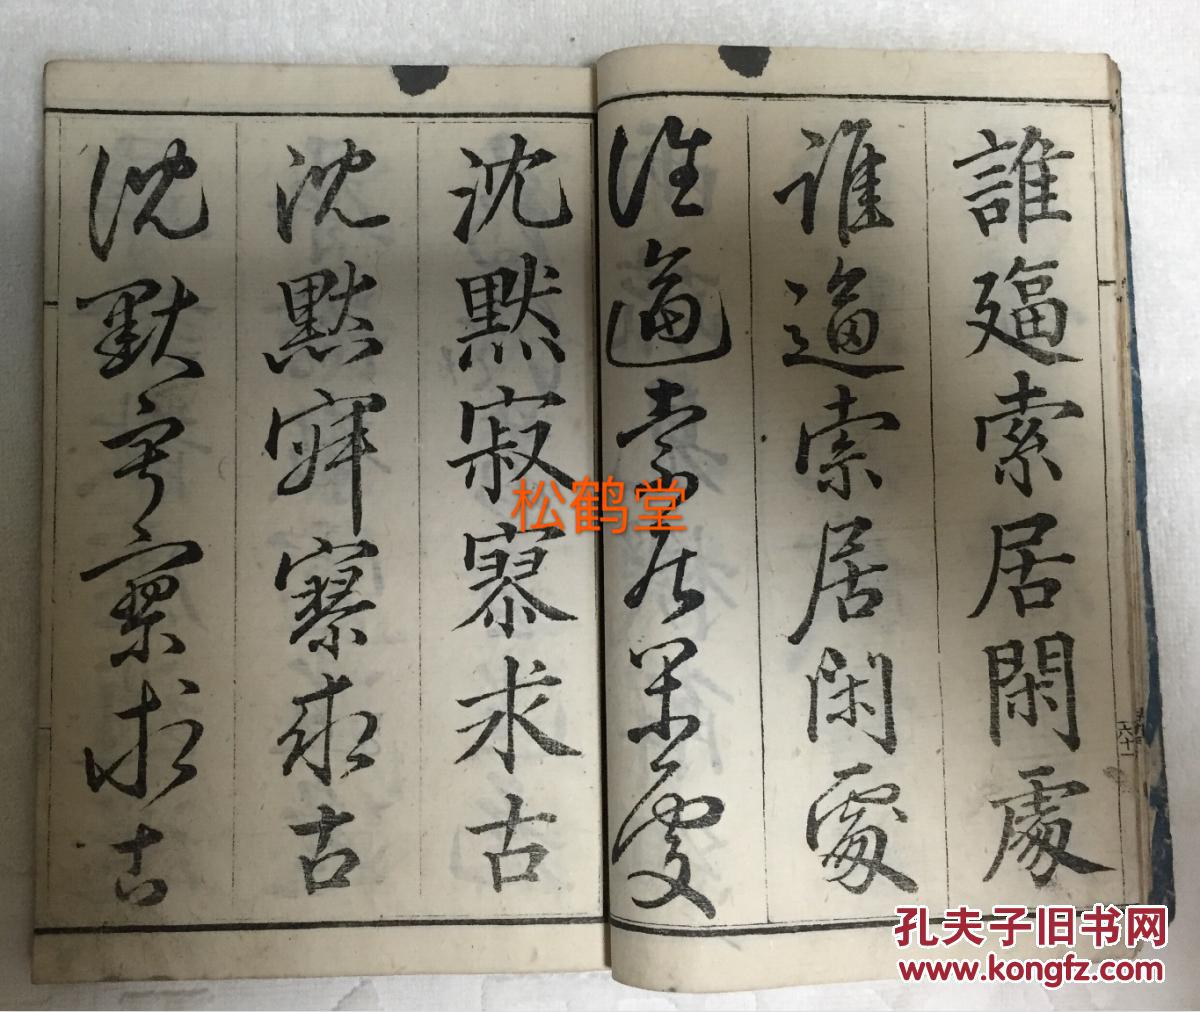 誰逼索居閑處
誰逼索居閑處
誰逼索居閑處
沈默寂寥求古
沈默寂寥求古
沈默寂寥求古
六十一
松鹤堂
孔夫子旧书网
www.kongfz.com